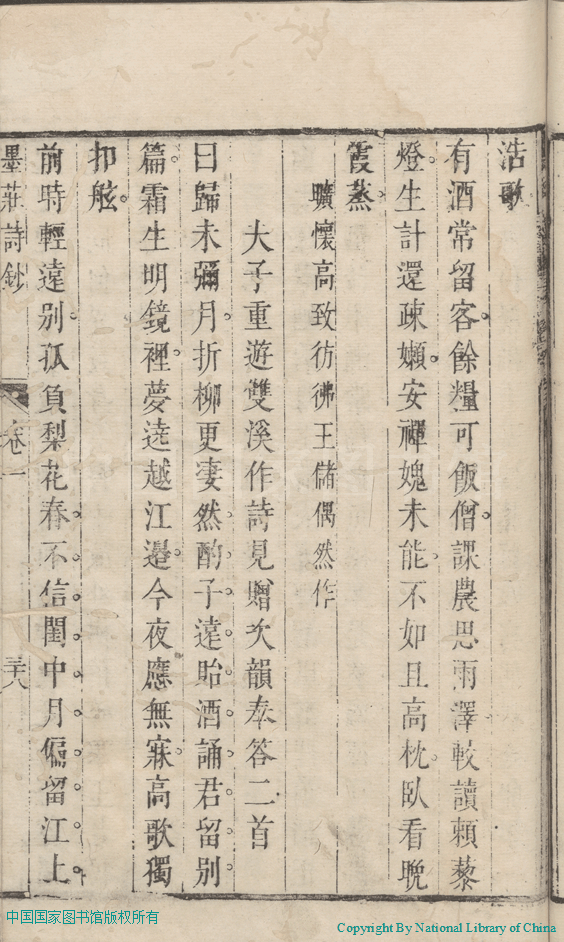 浩歌
有酒常留客餘糧可飯僧課農思雨澤較讀賴藜
燈生計還疎嬾安禪媿未能不如且高枕臥看晩
霞蒸
曠懷高致彷彿王儲偶然作
夫子重遊雙溪作詩見贈次韻奉答二首
日歸未彌月折柳更凄然酌子遠貽酒誦君留別
篇霜生明鏡裡夢遶越江邉今夜應無寐高歌獨
扣舷
前時輕遠別孤負梨花春不信閨中月偏留江上
墨莊詩鈔
卷一
三十八
中国国家图书馆版权所有
Copyright By National Library of China